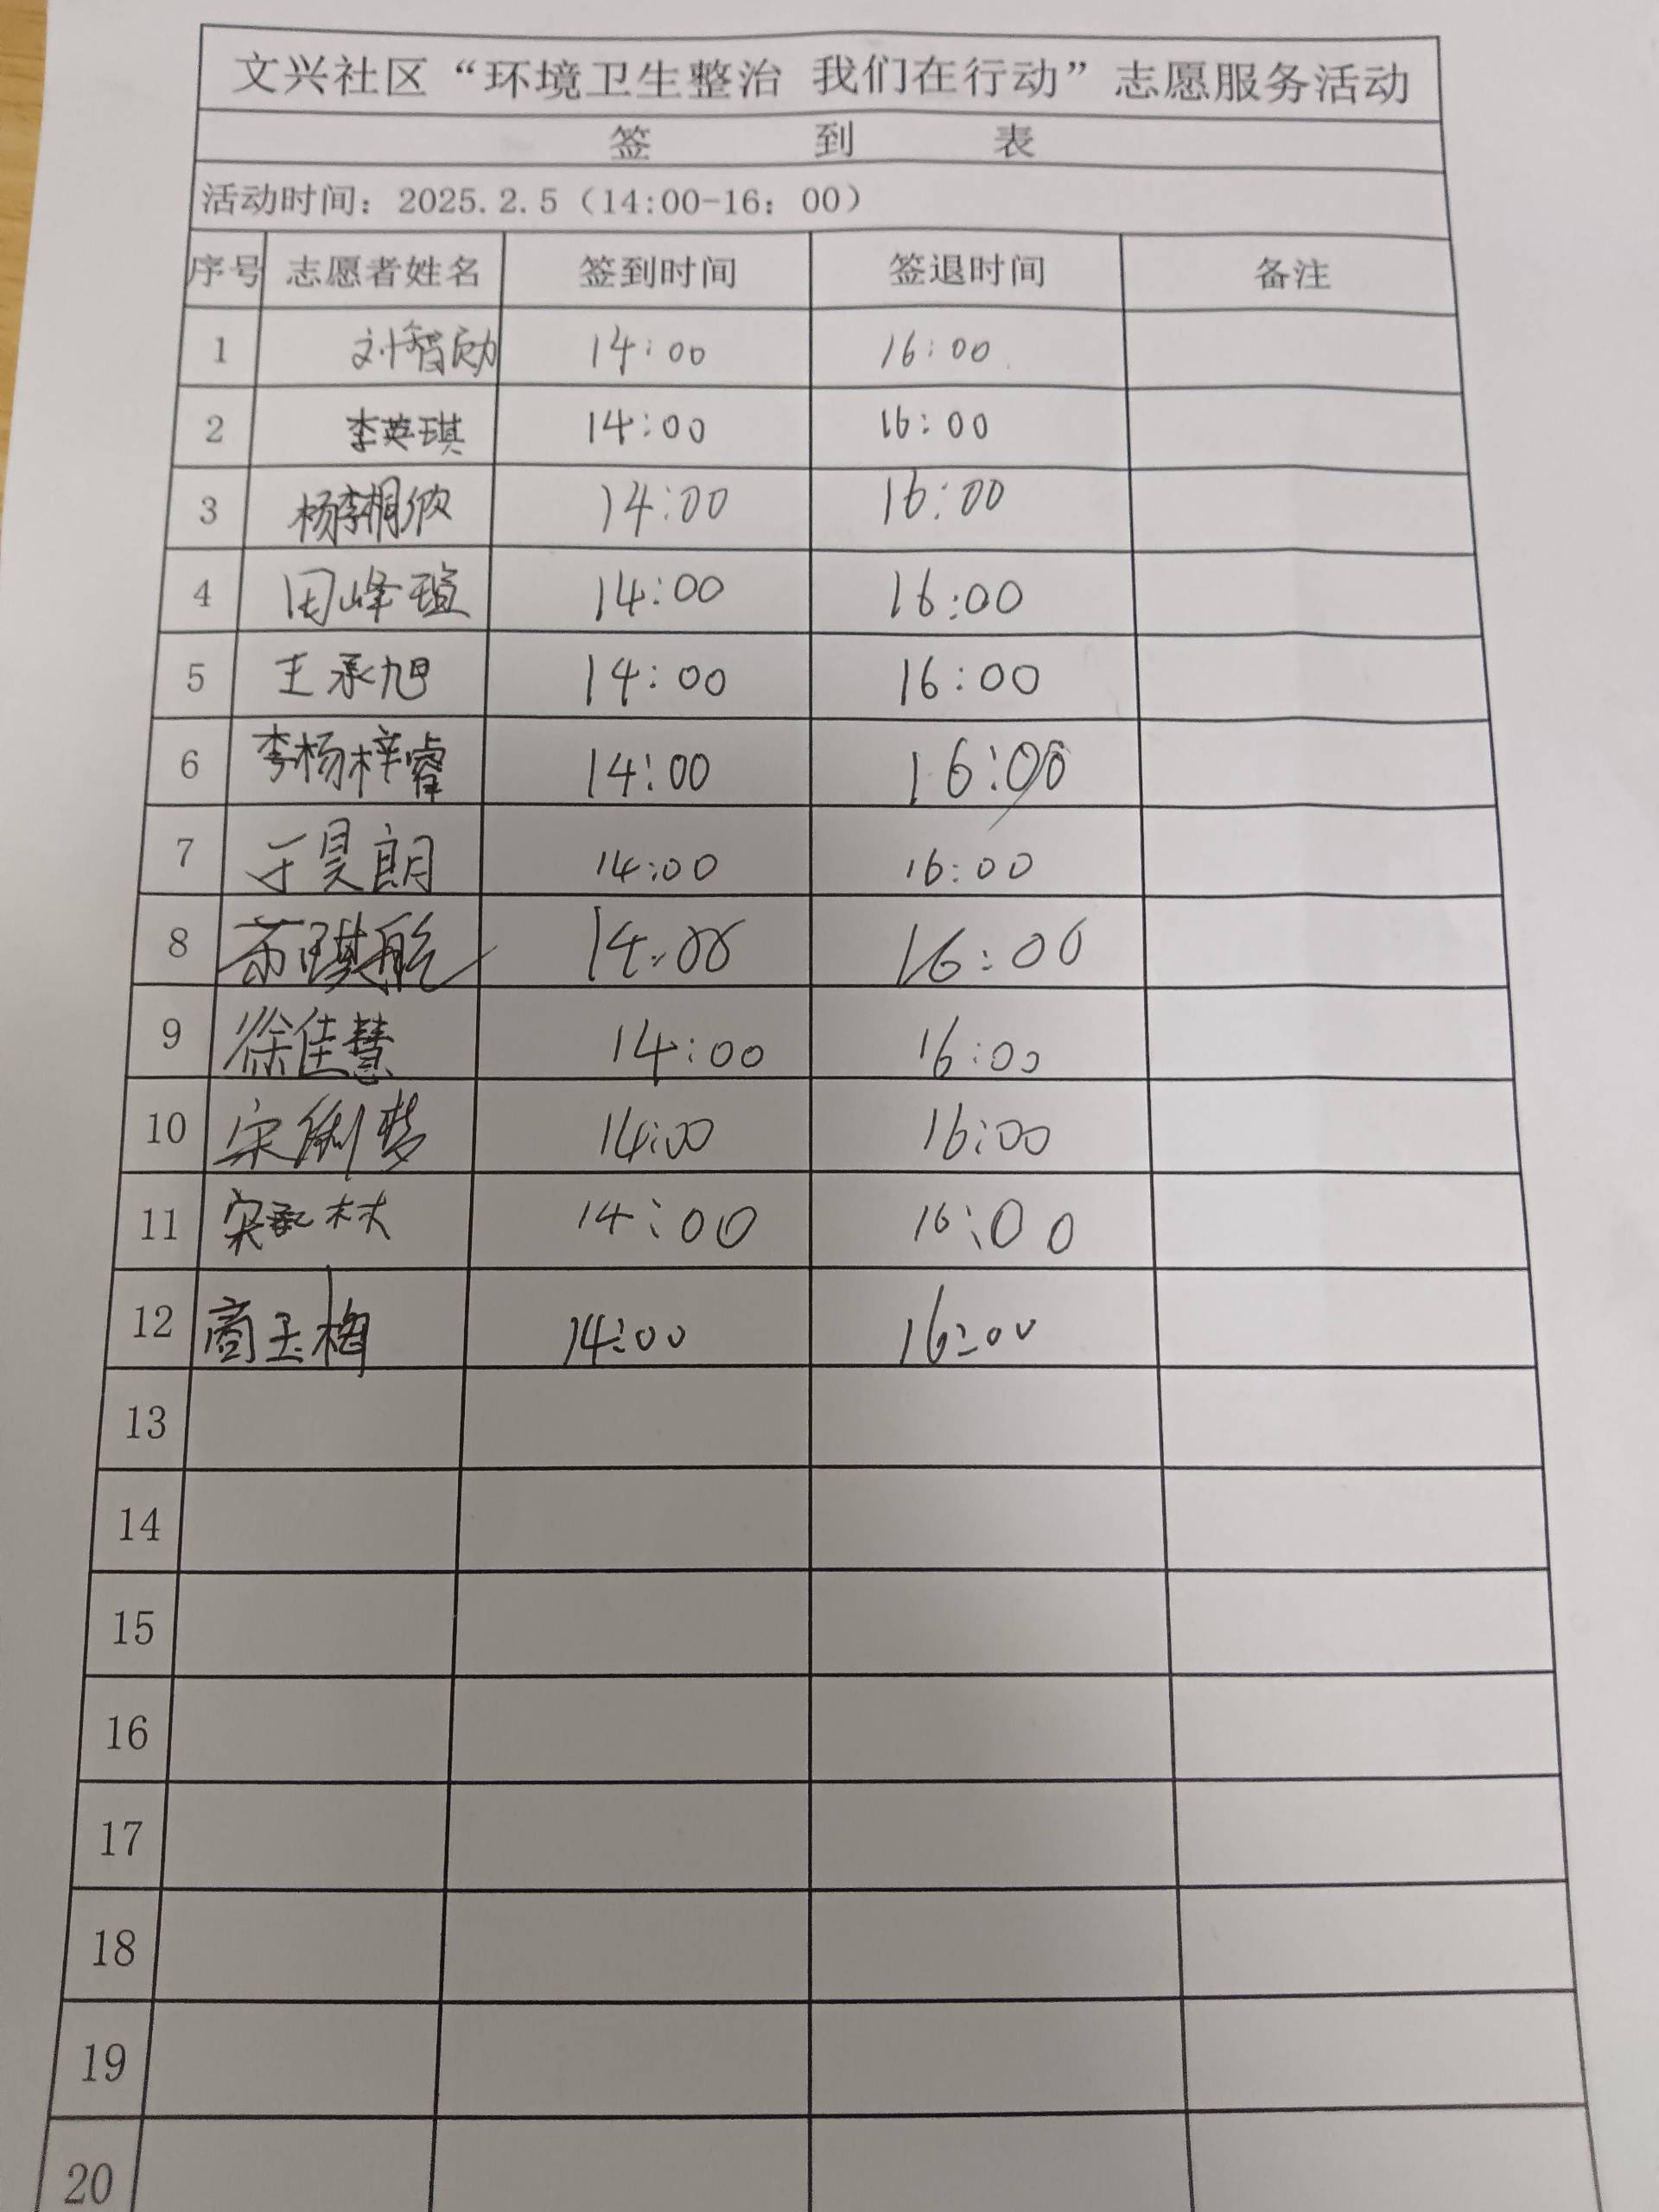 文兴社区“环境卫生整治 我们在行动”志愿服务活动
签 到 表
活动时间：2025.2.5（14:00-16：00）
序号 志愿者姓名 签到时间 签退时间 备注
1 刘智勋 14:00 16:00
2 李英琪 14:00 16:00
3 杨李桐欣 14:00 16:00
4 周峰瑄 14:00 16:00
5 王承旭 14:00 16:00
6 李杨梓睿 14:00 16:00
7 于昊朗 14:00 16:00
8 苏琪航 14:00 16:00
9 徐佳慧 14:00 16:00
10 宋俐梦 14:00 16:00
11 14:00 16:00
12 商玉梅 14:00 16:00
13
14
15
16
17
18
19
20